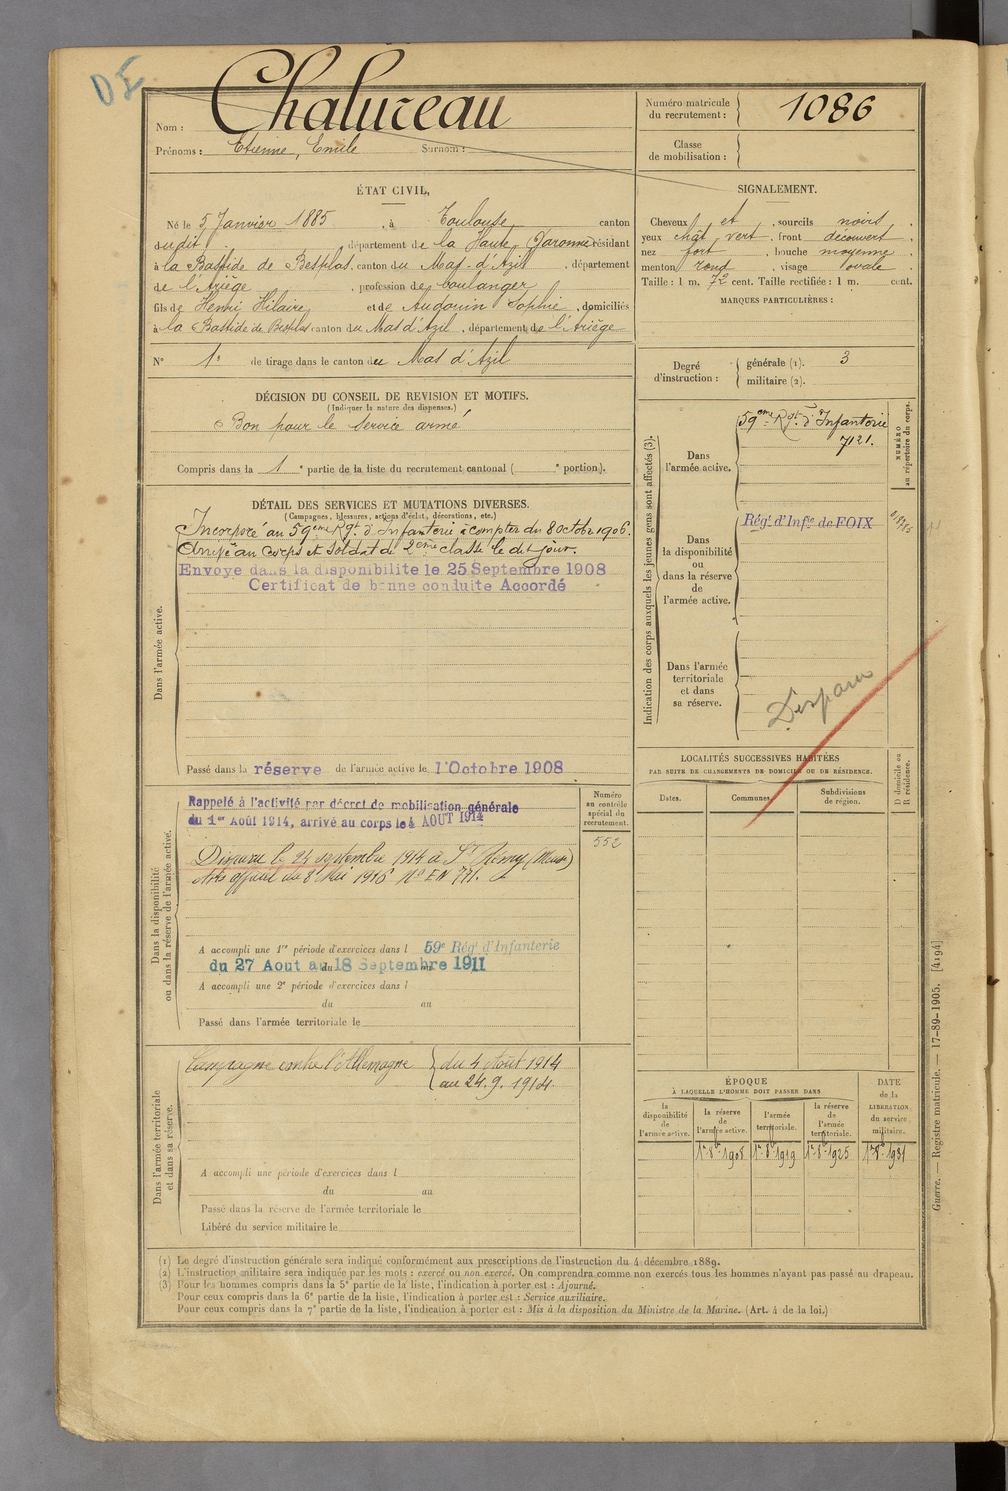 DE
Nom : Chalureau
Prénoms : Etienne, Emile Surnom :
Numéro matricule
du recrutement : 1086
Classe
de mobilisation :
ÉTAT CIVIL.
Né le 5 Janvier 1885, à Toulouse canton
dudit département de la Haute Garonne résidant
à la Bastide de Besplas, canton du Mas-d'Azil, département
de l'Ariège, profession de boulanger
fils de Henri Hilaire et de Audouin Sophie, domiciliés
à la Bastide de Besplas canton du Mas d'Azil, département de l'Ariège
N° 1 de tirage dans le canton du Mas d'Azil
SIGNALEMENT.
Cheveux et, sourcils noirs,
yeux chât vert, front découvert,
nez fort, bouche moyenne,
menton rond, visage ovale.
Taille : 1 m. 72 cent. Taille rectifiée : 1 m. cent.
MARQUES PARTICULIÈRES :
Degré
d'instruction :
générale (1). 3
militaire (2).
DÉCISION DU CONSEIL DE REVISION ET MOTIFS.
(Indiquer la nature des dispenses.)
Bon pour le service armé
Compris dans la 1e partie de la liste du recrutement cantonal ( e portion).
DÉTAIL DES SERVICES ET MUTATIONS DIVERSES.
(Campagnes, blessures, actions d'éclat, décorations, etc.)
Dans l'armée active.
Incorporé au 59eme Rgt d'Infanterie à compter du 8 octobre 1906.
Arrivé au Corps et soldat de 2eme classe le dit jour.
Envoyé dans la disponibilité le 25 Septembre 1908
Certificat de bonne conduite Accordé
Passé dans la réserve de l'armée active le 1 Octobre 1908
Indication des corps auxquels les jeunes gens sont affectés (3).
Dans
l'armée active.
59eme Rgt d'Infanterie
7121.
NUMÉRO
au répertoire du corps.
Dans
la disponibilité
ou
dans la réserve
de
l'armée active.
Régt d'Infie de FOIX
Dans l'armée
territoriale
et dans
sa réserve.
Disparu
Dans la disponibilité
ou dans la réserve de l'armée active.
Rappelé à l'activité par décret de mobilisation générale
du 1er Août 1914, arrivé au corps le 4 AOUT 1914
Disparu le 24 septembre 1914 à St Rémy (Meuse)
Avis officiel du 8 Mai 1916 N° EN 771.
Numéro
au contrôle
spécial du
recrutement.
552
A accompli une 1re période d'exercices dans l 59e Rég. d'Infanterie
du 27 Aout au 18 Septembre 1911
A accompli une 2e période d'exercices dans l
du au
Passé dans l'armée territoriale le
LOCALITÉS SUCCESSIVES HABITÉES
PAR SUITE DE CHANGEMENTS DE DOMICILE OU DE RÉSIDENCE.
D domicile ou
R résidence.
Dates.
Communes.
Subdivisions
de région.
Dans l'armée territoriale
et dans sa réserve.
Campagne contre l'Allemagne du 4 Août 1914
au 24.9.1914.
A accompli une période d'exercices dans l
du au
Passé dans la réserve de l'armée territoriale le
Libéré du service militaire le
ÉPOQUE
À LAQUELLE L'HOMME DOIT PASSER DANS
la
disponibilité
de
l'armée active.
la réserve
de
l'armée active.
l'armée
territoriale.
la réserve
de
l'armée
territoriale.
DATE
de la
LIBÉRATION
du service
militaire.
1er 8bre 1908 1er 8bre 1919 1er 8bre 1925 1er 8bre 1931
Guerre. — Registre matricule. — 17-89-1905. [4194]
(1) Le degré d'instruction générale sera indiqué conformément aux prescriptions de l'instruction du 4 décembre 1889.
(2) L'instruction militaire sera indiquée par les mots : exercé ou non exercé. On comprendra comme non exercés tous les hommes n'ayant pas passé au drapeau.
(3) Pour les hommes compris dans la 5e partie de la liste, l'indication à porter est : Ajourné.
Pour ceux compris dans la 6e partie de la liste, l'indication à porter est : Service auxiliaire.
Pour ceux compris dans la 7e partie de la liste, l'indication à porter est : Mis à la disposition du Ministre de la Marine. (Art. 4 de la loi.)